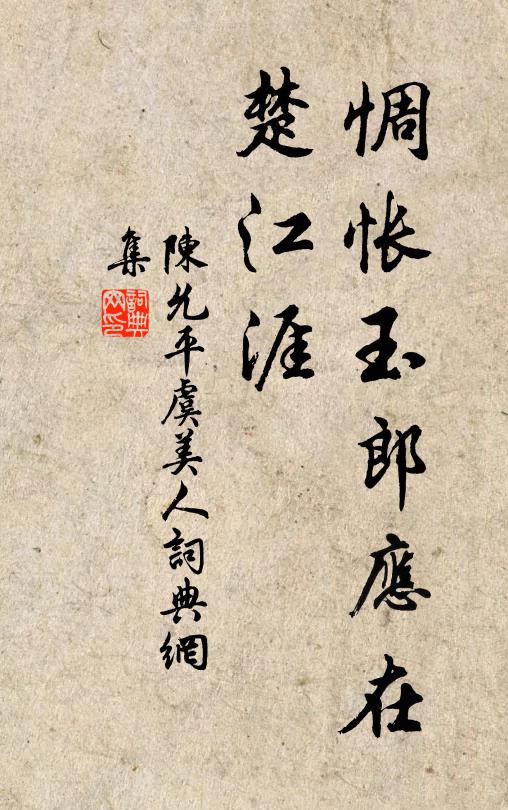 惆怅玉郎應在
楚江涯
陳允平虞美人詞典網
集
詞典
网印